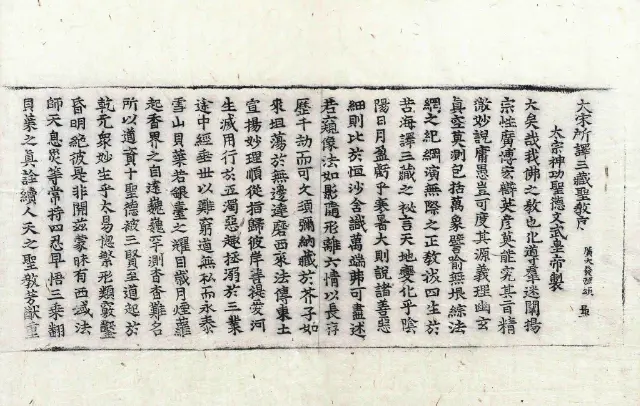 大宋所譯三藏聖教序
太宗神功聖德文武皇帝製
大矣哉我佛之教也化導羣迷闡揚
宗性廣博宏辯英彦莫能究其旨精
微妙說庸愚豈可度其源義理幽玄
真空莫測包括萬象譬喻無垠綜法
網之紀綱演無際之正教拔四生於
苦海譯三藏之秘言天地變化乎陰
陽日月盈虧乎寒暑大則說諸善惡
細則比於恒沙含識萬端弗可盡述
若窺像法如影隨形離六情以長存
歷千劫而可久須彌納藏於芥子如
來坦蕩於無邊達磨西來法傳東土
宣揚妙理順從指歸彼岸菩提愛河
生滅用行於五濁惡趣拯溺於三業
途中經垂世以難窮道無私而永泰
雪山貝葉若銀臺之耀目歲月煙蘿
起香界之自遠巍巍罕測杳杳難名
所以道資十聖德被三賢至道起於
乾元衆妙生乎太易揔繁形類竅鑿
昏明絕彼是非開兹蒙昧有西域法
師天息災等常持四忍早悟三乘翻
貝葉之真詮續人天之聖教芳猷重